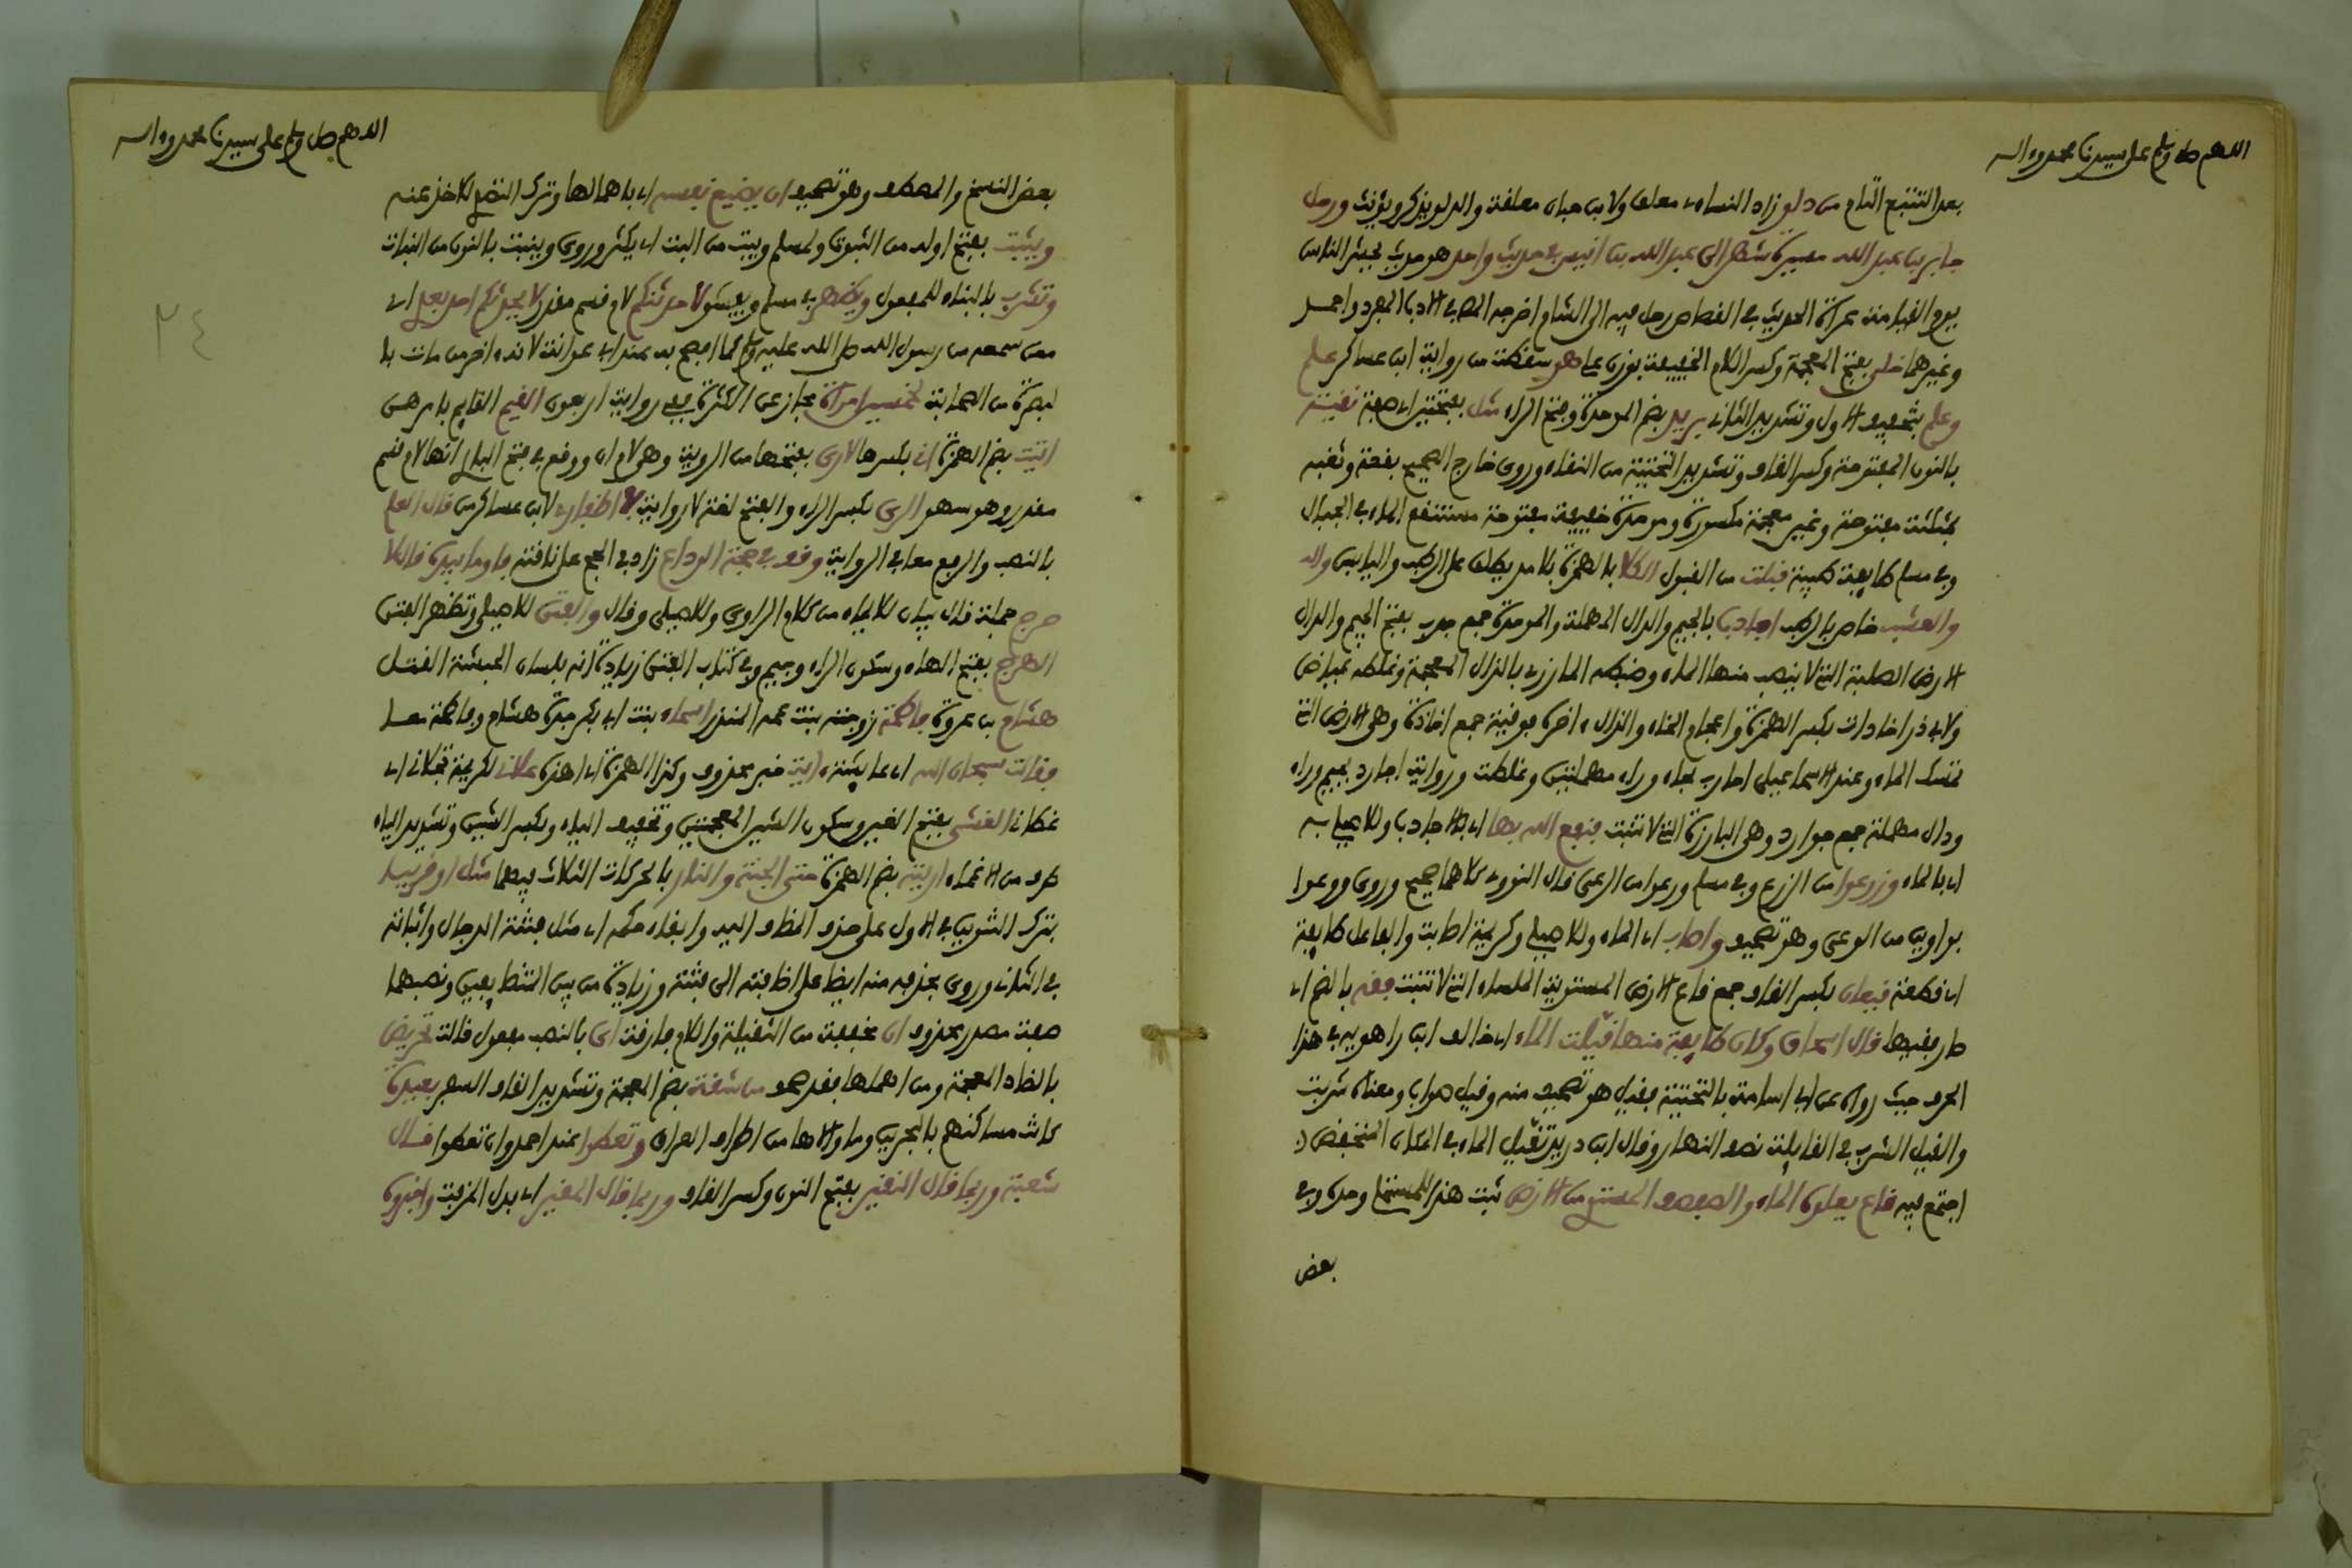 اللهم صل وسلم على سيدنا محمد وءاله
بعد التتبع التام من دلو زاد النساءى معلق ولابن حبان معلقة والدلو يذكر ويؤنث ورحل
جابر بن عبد الله مسيرة شهر الى عبد الله بن انيس في حديث واحد هو حديث يحشر الناس
يوم القيامة عراة الحديث في القصاص رحل فيه الى الشام اخرجه المص في الادب المفرد واحمد
وغيرهما خلي بفتح المعجمة وكسر اللام الخفيفة بوزن علي هو سقطت من رواية ابن عساكر علم
وعلم بتخفيف الاول وتشديد الثاني بريد بضم الموحدة وفتح الراء مثل بفتحتين اي صفة نقية
بالنون المفتوحة وكسر القاف وتشديد التحتية من النقاء وروي خارج الصحيح بقعة وثغبة
بمثلثة مفتوحة وغين معجمة مكسورة وموحدة خفيفة مفتوحة مستنقع الماء في الجبال
وفي مسلم طايفة طيبة قبلت من القبول الكلا بالهمزة بلا مد يطلق على الرطب واليابس والـ
والعشب خاص بالرطب اجادب بالجيم والدال المهملة والموحدة جمع جدب بفتح الجيم والدال
الارض الصلبة التي لا ينضب منها الماء وضبطه المازري بالذال المعجمة وغلطه عياض
ولابي ذر اخاذات بكسر الهمزة واعجام الخاء والذال ءاخره فوقية جمع اخاذة وهي الارض التي
تمسك الماء وعند الاسماعيلي احارب بحاء وراء مهملتين وغلطت ورواية اجارد بجيم وراء
ودال مهملة جمع جوارد وهي البارزة التي لا تنبت فنفع الله بها اي بالاجادب وللاصيلي به
اي بالماء وزرعوا من الزرع وفي مسلم ورعوا من الرعي قال النووي كلاهما صحيح وروي ووعوا
بواوين من الوعي وهو تصحيف واصاب اي الماء وللاصيلي وكريمة اصابت والفاعل طايفة
اي قطعة قيعان بكسر القاف جمع قاع الارض المستوية الملساء التي لا تنبت فقه بالضم اي
صار فقيها قال اسحاق وكان طايفة منها قيلت الماء اي خالف ابن راهويه في هذا
الحرف حيث رواه عن ابي اسامة بالتحتية فقيل هو تصحيف منه وقيل صواب ومعناه شربت
والقيل الشرب في القايلة نصف النهار وقال ابن دريد تقيل الماء في المكان المنخفض اذ
اجتمع فيه قاع يعلوه الماء والصفصف المستوي من الارض ثبت هذا للمستملي وحده وفي
بعض
اللهم صل وسلم على سيدنا محمد وءاله
٢٤
بعض النسخ والمصطف وهو تصحيف ان يضيع نفسه اي باهمالها وترك التصدي للاخذ عنه
ويثبت بفتح اوله من الثبوت ولمسلم ويبث من البث اي يكثر وروي وينبت بالنون من النبات
وتشرب بالبناء للمفعول ويظهر في مسلم ويفشو لاحدثنكم لام قسم مقدر لا يحدثكم احد بعدي اي
ممن سمعه من رسول الله صلى الله عليه وسلم كما افصح به عند ابي عوانة لانه ءاخر من مات با
لبصرة من الصحابة لخمسين امراة مجاز عن الكثرة ففي رواية اربعون القيم القايم بامرهن
اتيت بضم الهمزة اني بكسرها لارى بفتحها من الروية وهي لام ان ووقع في فتح الباري انها لام قسم
مقدر وهو سهو الري بكسر الراء والفتح لغة لا رواية في اظفاري لابن عساكر من قال العلم
بالنصب والرفع معا في الرواية وقف في حجة الوداع زاد في الحج على ناقته فاوما بيده قال لا
حرج جملة قال بيان للايماء من كلام الراوي وللاصيلي وقال والفتن للاصيلي وتظهر الفتن
الهرج بفتح الهاء وسكون الراء وجيم وفي كتاب الفتن زيادة انه بلسان الحبشة القتل
هشام بن عروة فاطمة زوجته بنت عمه المنذر اسماء بنت ابي بكر جدة هشام وفاطمة معا
فقالت سبحان الله اي عايشة ءاية خبر محذوف وكذا الهمزة اي اهذه علاني لكريمة تجلاني اي
غطاني الغشي بفتح الغين وسكون الشين المعجمتين وتخفيف الياء وبكسر الشين وتشديد الياء
طرف من الاغماء اريته بضم الهمزة حتى الجنة والنار بالحركات الثلاث فيهما مثل او قريبا
بترك التنوين في الاول على حذف المضاف اليه وابقاء حكمه اي مثل فتنة الدجال واثباته
في الثاني وروي بحذفه منه ايضا على اضافته الى فتنة وزيادة من بين المتضايفين ونصبهما
صفة مصدر محذوف ان مخففة من الثقيلة واللام فارقة اي بالنصب مفعول قالت تحريض
بالضاد المعجمة ومن اهملها فقد صحف من شقة بضم المعجمة وتشديد القاف السفر بعيدة
كانت مساكنهم بالبحرين وما والاها من اطراف العراق وتعطوا عند احمد وان تعطوا قال
شعبة وربما قال النقير بفتح النون وكسر القاف وربما قال المقير اي بدل المزفت واخبروه